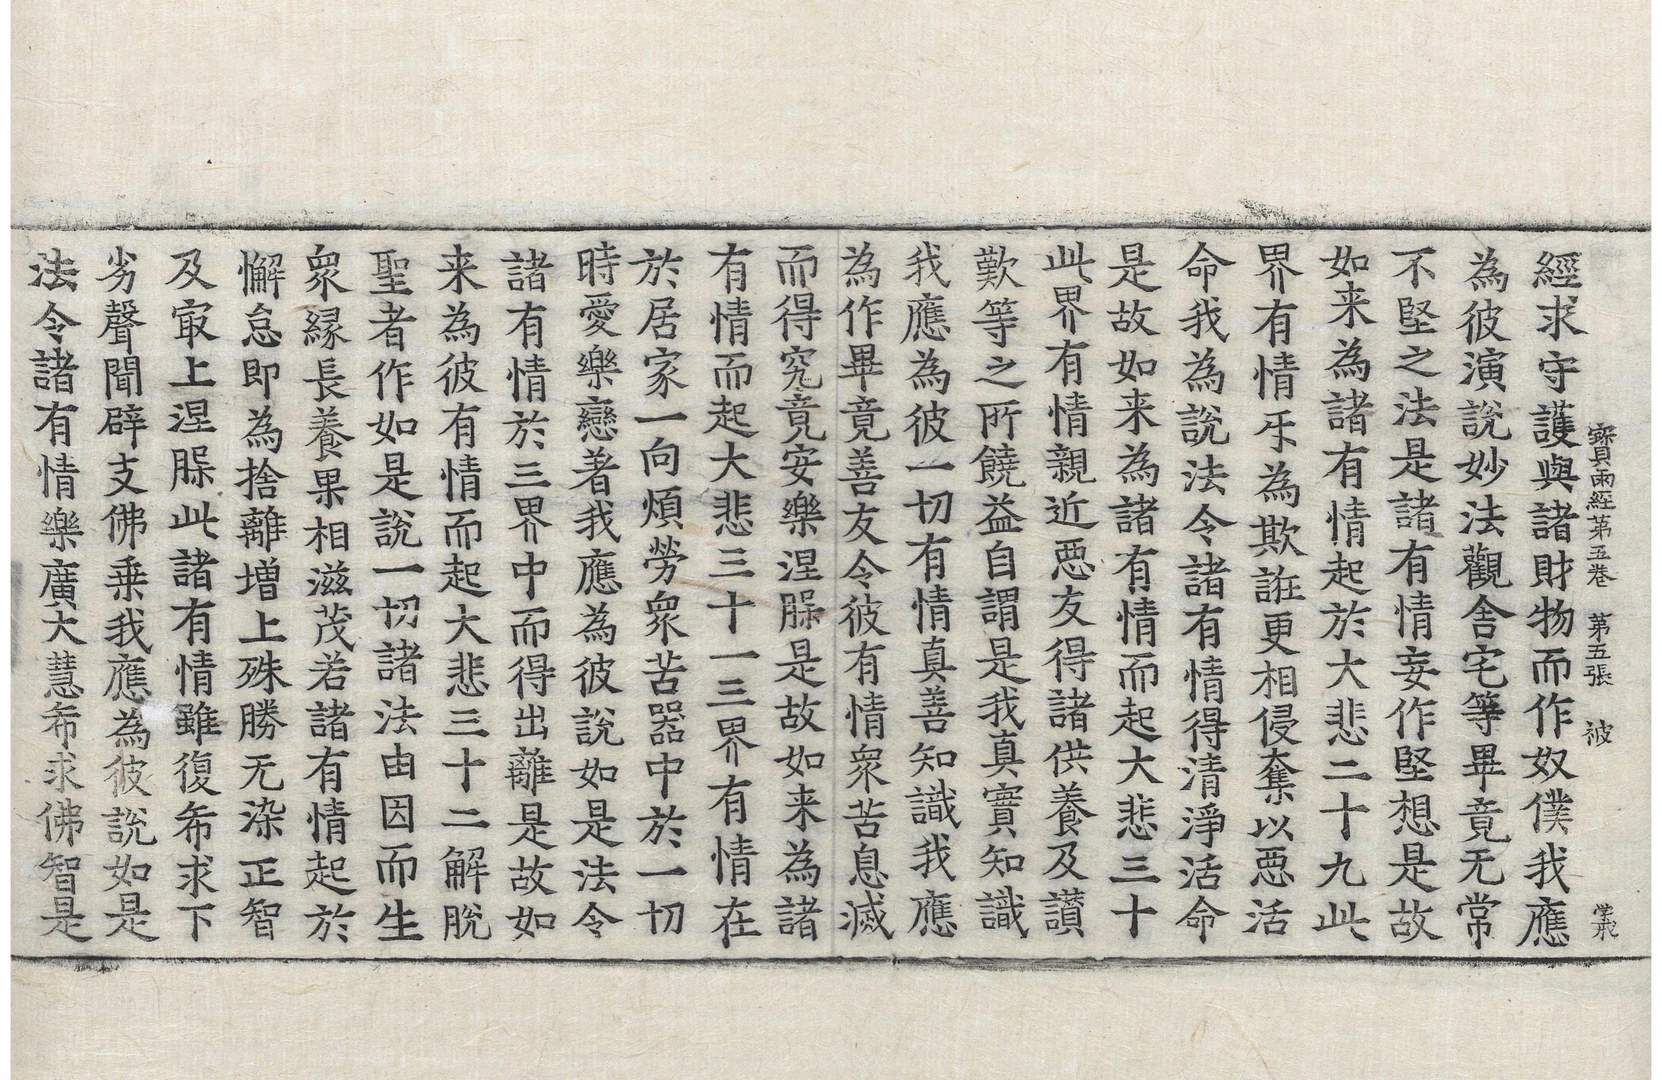 寳雨經第五卷 第五張 被
經求守護與諸財物而作奴僕我應
為彼演說妙法觀舍宅等畢竟无常
不堅之法是諸有情妄作堅想是故
如来為諸有情起於大悲二十九此
界有情𤓰為欺誑更相侵奪以惡活
命我為說法令諸有情得清淨活命
是故如来為諸有情而起大悲三十
此界有情親近惡友得諸供養及讃
歎等之所饒益自謂是我真實知識
我應為彼一切有情真善知識我應
為作畢竟善友令彼有情衆苦息滅
而得究竟安樂涅槃是故如来為諸
有情而起大悲三十一三界有情在
於居家一向煩勞衆苦器中於一切
時愛樂戀著我應為彼說如是法令
諸有情於三界中而得出離是故如
来為彼有情而起大悲三十二解脫
聖者作如是說一切諸法由因而生
衆緣長養果相滋茂若諸有情起於
懈怠即為捨離增上殊勝无染正智
及㝡上涅槃此諸有情雖復希求下
劣聲聞辟支佛乗我應為彼說如是
法令諸有情樂廣大慧希求佛智是